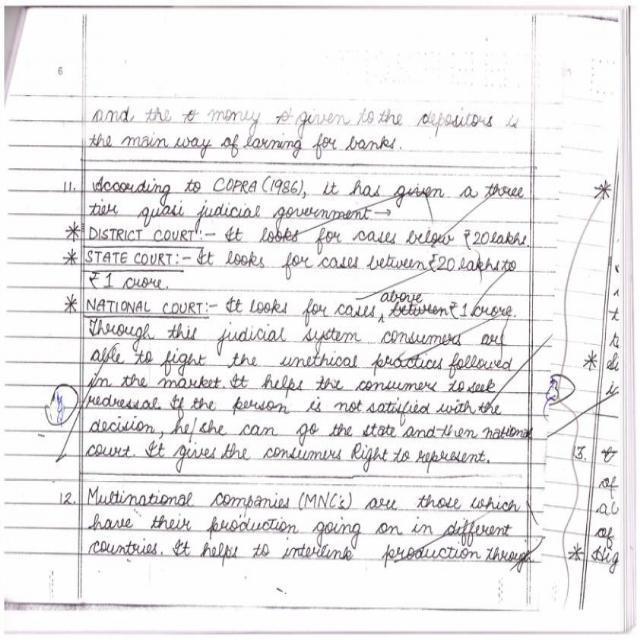 6
and the money given to the depositors is
the main way of earning for banks.
11. According to COPRA (1986), it has given a three
tier quasi judicial government →
* DISTRICT COURT :- It looks for cases below ₹20 lakhs.
* STATE COURT :- It looks for cases between ₹20 lakhs to
₹1 crore.
* NATIONAL COURT :- It looks for cases above between ₹1 crore.
Through this judicial system consumers are
able to fight the unethical practices followed
in the market. It helps the consumers to seek
redressal. If the person is not satisfied with the
decision, he/she can go the state and then national
court. It gives the consumers Right to represent.
12. Multinational companies (MNC's) are those which
have their production going on in different
countries. It helps to interlink production through